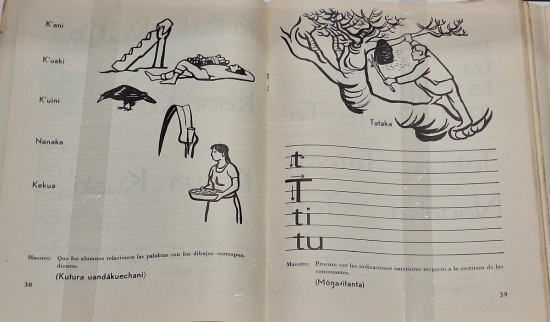 K'ani
K'uaki
K'uini
Nanaka
Kekua
Maestro: Que los alumnos relacionen las palabras con los dibujos correspon-
dientes.
(Kutura uandákuechani)
38
Tataka
t
T
ti
tu
Maestro: Procure ver las indicaciones anteriores respecto a la escritura de las
consonantes.
39